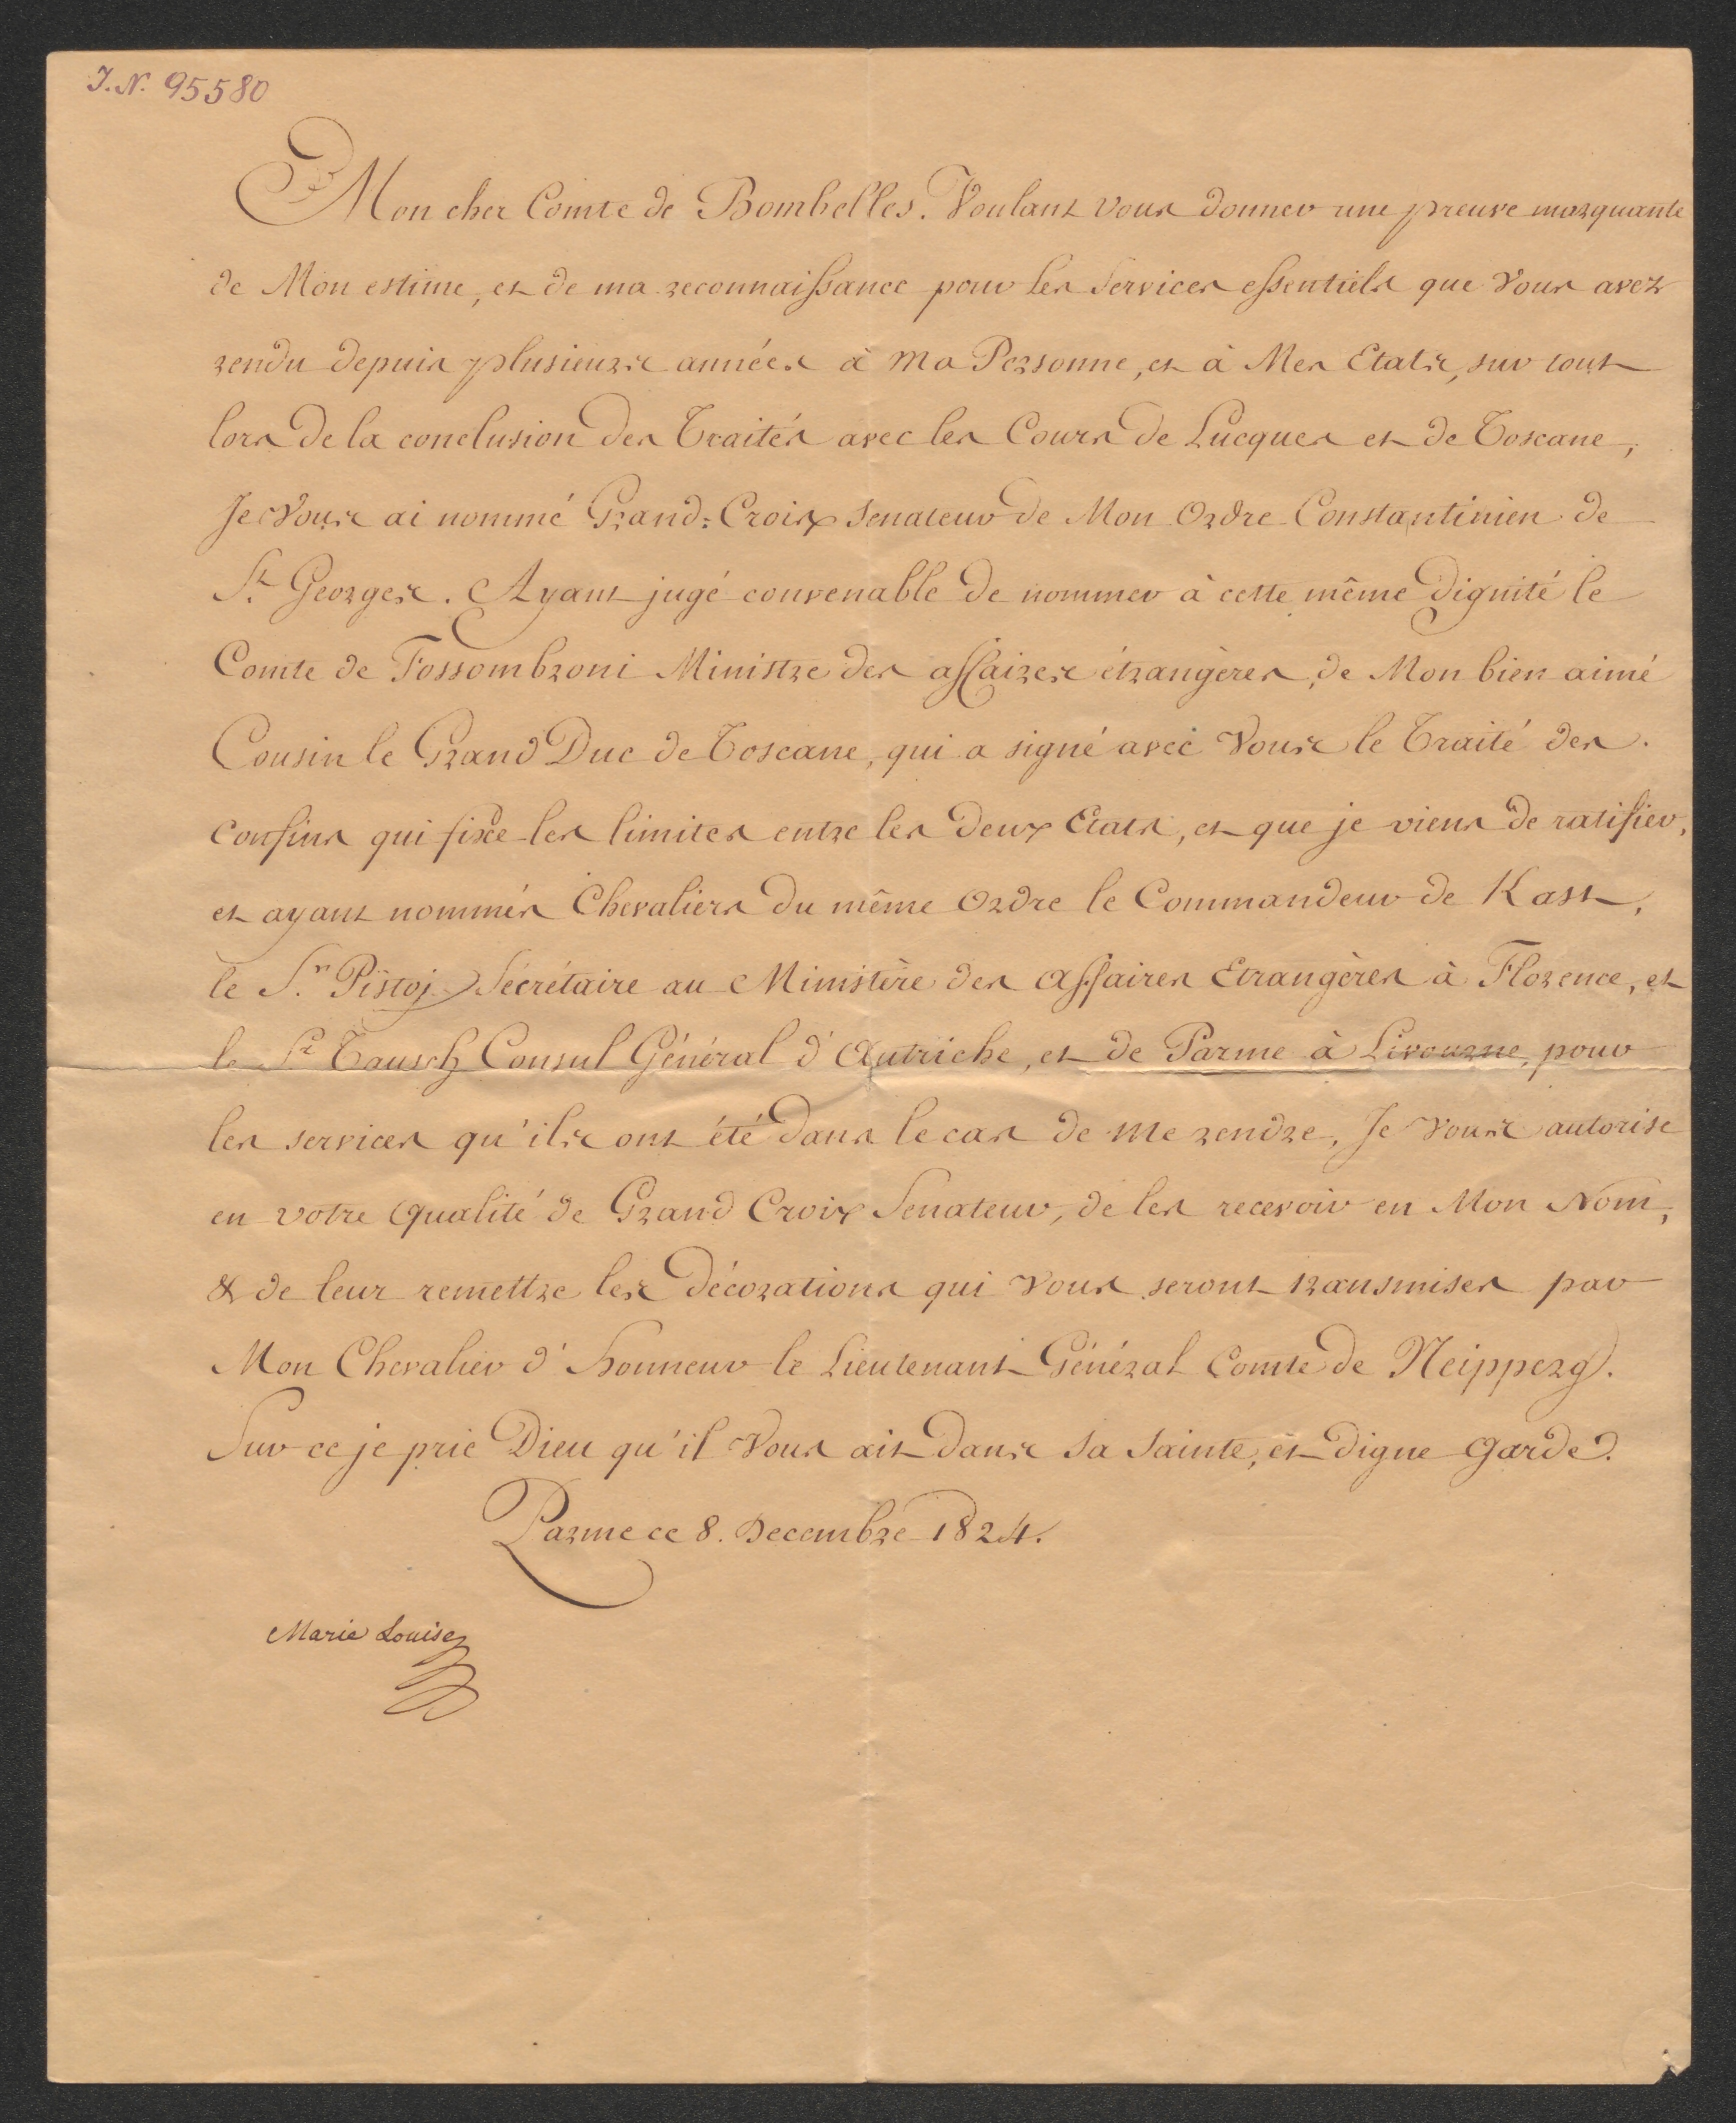 J.N. 95580
Mon cher Comte de Bombelles. Voulant vous donner une preuve marquante
de Mon estime, et de ma reconnaissance pour les services essentiels que Vous avez
rendu depuis plusieurs années à Ma Personne, et à Mes Etats, sur tout
lors de la conclusion des Traités avec les Cours de Lucques et de Toscane,
Je Vous ai nommé Grand-Croix Senateur de Mon Ordre Constantinien de
St Georges. Ayant jugé convenable de nommer à cette même Dignité le
Comte de Fossombroni Ministre des affaires étrangères, de Mon bien aimé
Cousin le Grand Duc de Toscane, qui a signé avec Vous le Traité des
confins qui fixe les limites entre les deux Etats, et que je viens de ratifier,
et ayant nommés Chevaliers du même Ordre le Commandeur de Kast,
le Sr Pistoj Sécrétaire au Ministère des Affaires Etrangères à Florence, et
le Sr Tausch Consul Général d'Autriche, et de Parme à Livourne, pour
les services qu'ils ont été dans le cas de me rendre, Je Vous autorise
en votre Qualité de Grand Croix Senateur, de les recevoir en Mon Nom,
& de leur remettre les Décorations qui Vous seront transmises par
Mon Chevalier d'honneur le Lieutenant Général Comte de Neipperg.
Sur ce je prie Dieu qu'il Vous ait dans Sa Sainte, et digne garde.
Parme ce 8. Decembre 1824.
Marie Louise